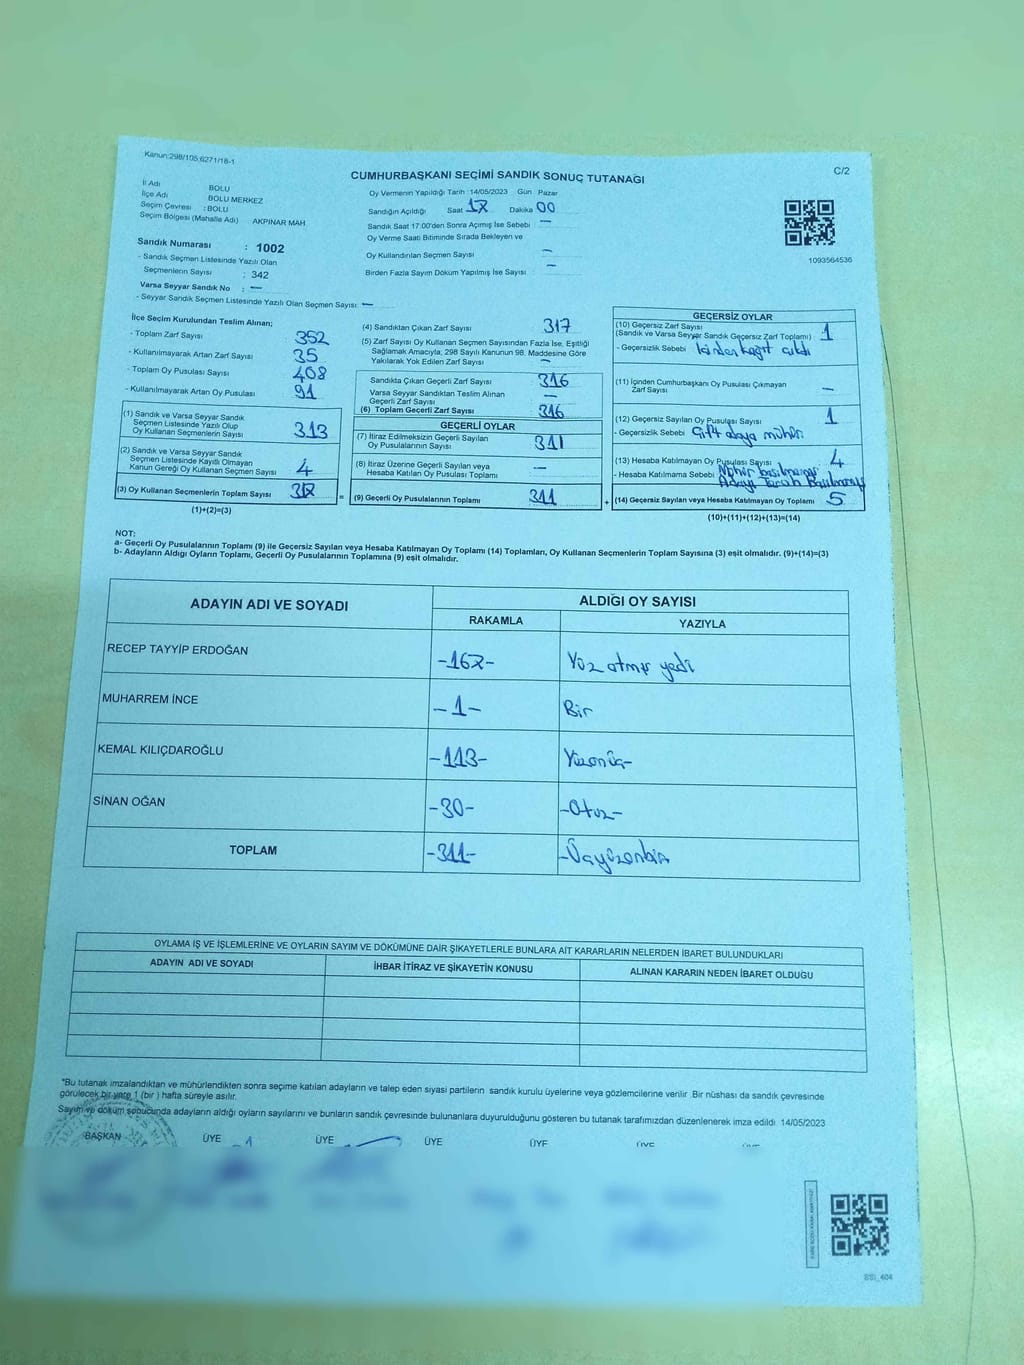 Kanun:298/105,6271/18-1
C/2
CUMHURBAŞKANI SEÇİMİ SANDIK SONUÇ TUTANAĞI
İl Adı BOLU
İlçe Adı BOLU MERKEZ
Seçim Çevresi : BOLU
Seçim Bölgesi (Mahalle Adı) AKPINAR MAH
Oy Vermenin Yapıldığı Tarih :14/05/2023 Gün Pazar
Sandığın Açıldığı Saat 17 Dakika 00
Sandık Saat 17:00'den Sonra Açımış İse Sebebi —
Oy Verme Saati Bitiminde Sırada Bekleyen ve
Oy Kullandırılan Seçmen Sayısı —
Birden Fazla Sayım Döküm Yapılmış İse Sayısı —
1093564536
Sandık Numarası : 1002
- Sandık Seçmen Listesinde Yazılı Olan
Seçmenlerin Sayısı : 342
Varsa Seyyar Sandık No : —
- Seyyar Sandık Seçmen Listesinde Yazılı Olan Seçmen Sayısı: —
İlçe Seçim Kurulundan Teslim Alınan;
- Toplam Zarf Sayısı 352
- Kullanılmayarak Artan Zarf Sayısı 35
- Toplam Oy Pusulası Sayısı 408
- Kullanılmayarak Artan Oy Pusulası 91
(1) Sandık ve Varsa Seyyar Sandık
Seçmen Listesinde Yazılı Olup
Oy Kullanan Seçmenlerin Sayısı 313
(2) Sandık ve Varsa Seyyar Sandık
Seçmen Listesinde Kayıtlı Olmayan
Kanun Gereği Oy Kullanan Seçmen Sayısı 4
(3) Oy Kullanan Seçmenlerin Toplam Sayısı 317
(1)+(2)=(3)
(4) Sandıktan Çıkan Zarf Sayısı 317
(5) Zarf Sayısı Oy Kullanan Seçmen Sayısından Fazla İse, Eşitliği
Sağlamak Amacıyla, 298 Sayılı Kanunun 98. Maddesine Göre
Yakılarak Yok Edilen Zarf Sayısı —
Sandıkta Çıkan Geçerli Zarf Sayısı 316
Varsa Seyyar Sandıktan Teslim Alınan
Geçerli Zarf Sayısı —
(6) Toplam Geçerli Zarf Sayısı 316
GEÇERLİ OYLAR
(7) İtiraz Edilmeksizin Geçerli Sayılan
Oy Pusulalarının Sayısı 311
(8) İtiraz Üzerine Geçerli Sayılan veya
Hesaba Katılan Oy Pusulası Toplamı —
= (9) Geçerli Oy Pusulalarının Toplamı 311
GEÇERSİZ OYLAR
(10) Geçersiz Zarf Sayısı
(Sandık ve Varsa Seyyar Sandık Geçersiz Zarf Toplamı) 1
- Geçersizlik Sebebi İçinden kağıt çıktı
(11) İçinden Cumhurbaşkanı Oy Pusulası Çıkmayan
Zarf Sayısı —
(12) Geçersiz Sayılan Oy Pusulası Sayısı 1
- Geçersizlik Sebebi Çift adaya mühür
(13) Hesaba Katılmayan Oy Pusulası Sayısı 4
- Hesaba Katılmama Sebebi Mühür basılmamış
+ (14) Geçersiz Sayılan veya Hesaba Katılmayan Oy Toplamı 5
(10)+(11)+(12)+(13)=(14)
NOT:
a- Geçerli Oy Pusulalarının Toplamı (9) ile Geçersiz Sayılan veya Hesaba Katılmayan Oy Toplamı (14) Toplamları, Oy Kullanan Seçmenlerin Toplam Sayısına (3) eşit olmalıdır. (9)+(14)=(3)
b- Adayların Aldığı Oyların Toplamı, Geçerli Oy Pusulalarının Toplamına (9) eşit olmalıdır.
ADAYIN ADI VE SOYADI ALDIĞI OY SAYISI
RAKAMLA YAZIYLA
RECEP TAYYİP ERDOĞAN -167- Yüz atmış yedi
MUHARREM İNCE -1- Bir
KEMAL KILIÇDAROĞLU -113- Yüzonüç-
SİNAN OĞAN -30- -Otuz-
TOPLAM -311- -Üçyüzonbir
OYLAMA İŞ VE İŞLEMLERİNE VE OYLARIN SAYIM VE DÖKÜMÜNE DAİR ŞİKAYETLERLE BUNLARA AİT KARARLARIN NELERDEN İBARET BULUNDUKLARI
ADAYIN ADI VE SOYADI İHBAR İTİRAZ VE ŞİKAYETİN KONUSU ALINAN KARARIN NEDEN İBARET OLDUĞU
*Bu tutanak imzalandıktan ve mühürlendikten sonra seçime katılan adayların ve talep eden siyasi partilerin sandık kurulu üyelerine veya gözlemcilerine verilir .Bir nüshası da sandık çevresinde
görülecek bir yere 1 (bir ) hafta süreyle asılır.
Sayım ve döküm sonucunda adayların aldığı oyların sayılarını ve bunların sandık çevresinde bulunanlara duyurulduğunu gösteren bu tutanak tarafımızdan düzenlenerek imza edildi. 14/05/2023
BAŞKAN ÜYE ÜYE ÜYE ÜYE ÜYE